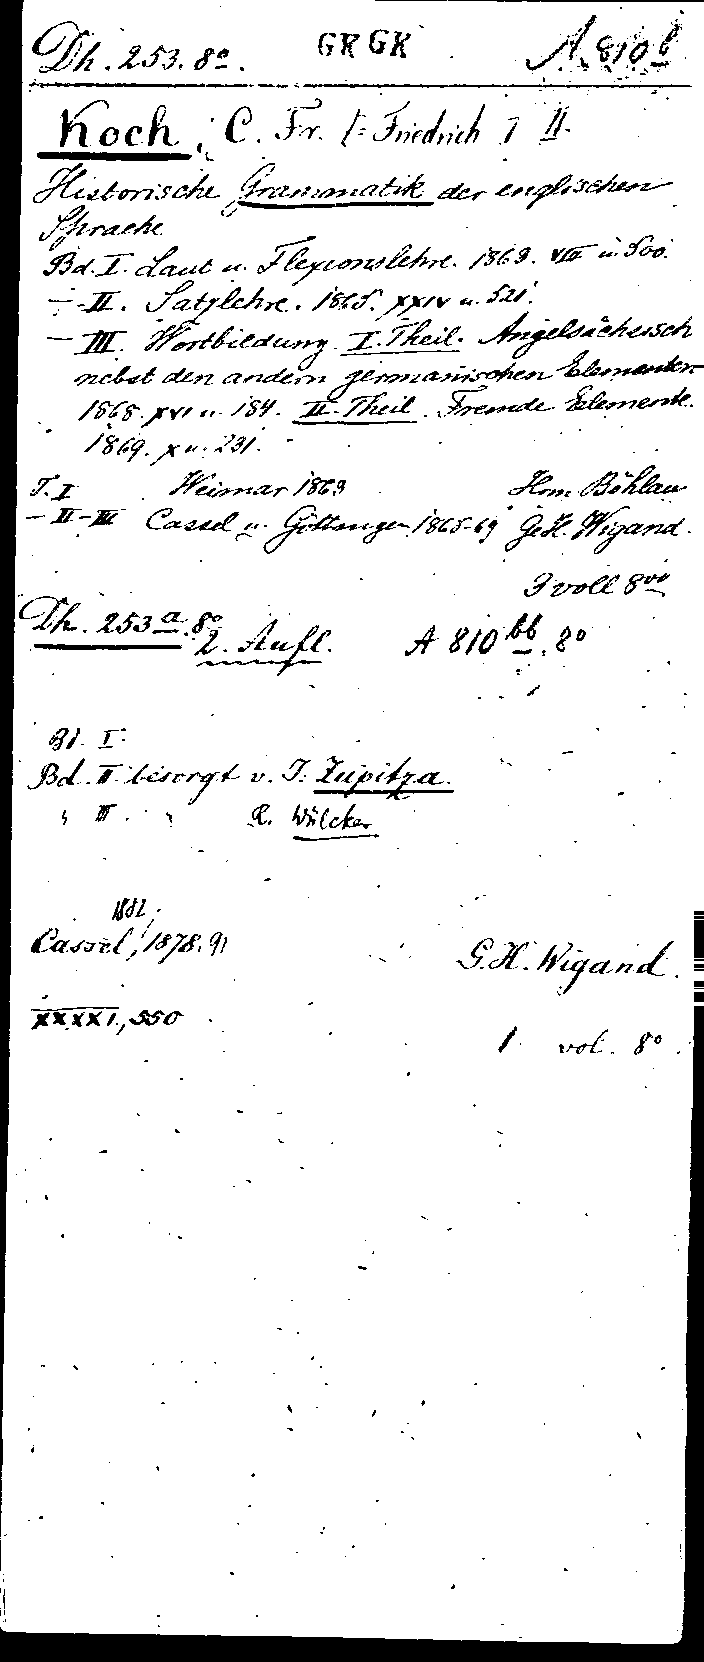 Dh. 253. 8º. GKGK A. 810 b
Koch, C. Fr. [= Friedrich] II.
Historische Grammatik der englischen
Sprache
Bd. I. Laut u. Flexionslehre. 1863. VIII u. 500.
— II. Satzlehre. 1865. XXIV u. 521.
— III. Wortbildung I. Theil. Angelsächsisch
nebst den andern germanischen Elementen
1868. XVI u. 184. II. Theil. Fremde Elemente.
1869. X u. 231.
T. I Weimar 1863 Hm. Böhlau
— II–III Cassel u. Göttingen 1865-69 G. H. Wigand.
3 voll 8vo
Dh. 253 a. 8º
2. Aufl. A 810 bb. 8º
Bd. I.
Bd. II besorgt v. J. Zupitza.
„ III. „ R. Wülcker
1882,
Cassel, 1878. 91 G. H. Wigand.
XXXXI, 550
1 vol. 8º.